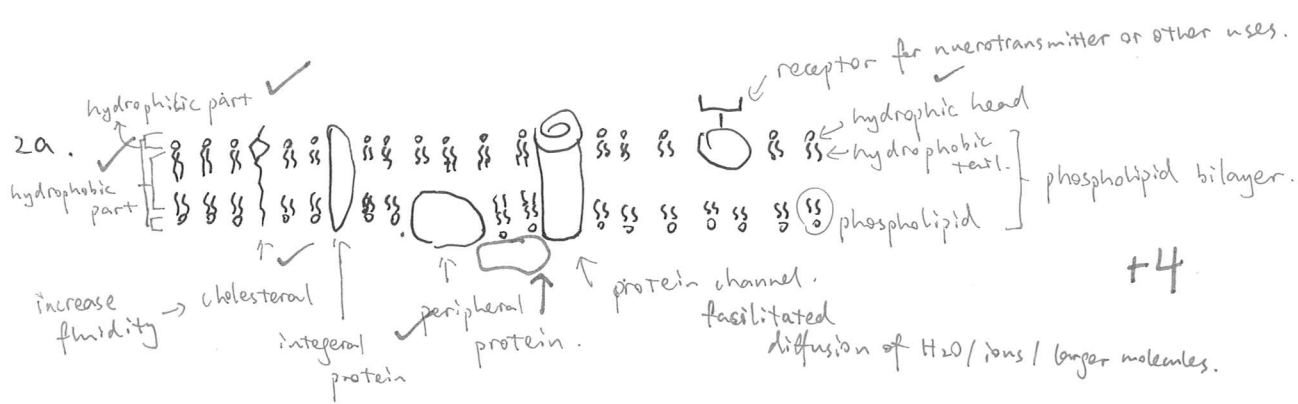 receptor for nuerotransmitter or other uses.
hydrophibic part
2a.
hydrophic head
hydrophobic
tail.
hydrophobic
part
phospholipid bilayer.
phospholipid
+4
increase
fluidity
cholesteral
integeral
protein
peripheral
protein.
protein channel.
fasilitated
diffusion of H2O/ions/ larger molecules.